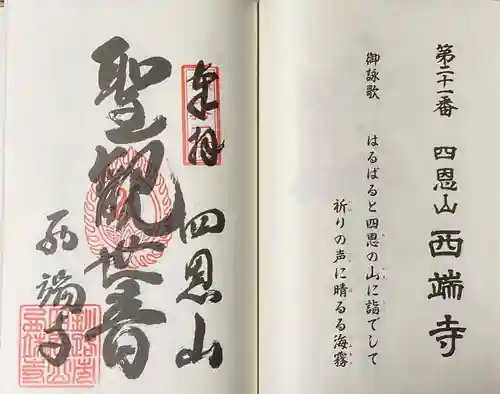 第二十一番 四恩山 西端寺
御詠歌 はるばると四恩の山に詣でして
祈りの声に晴るる海霧
奉拝 四恩山
聖観世音
西端寺